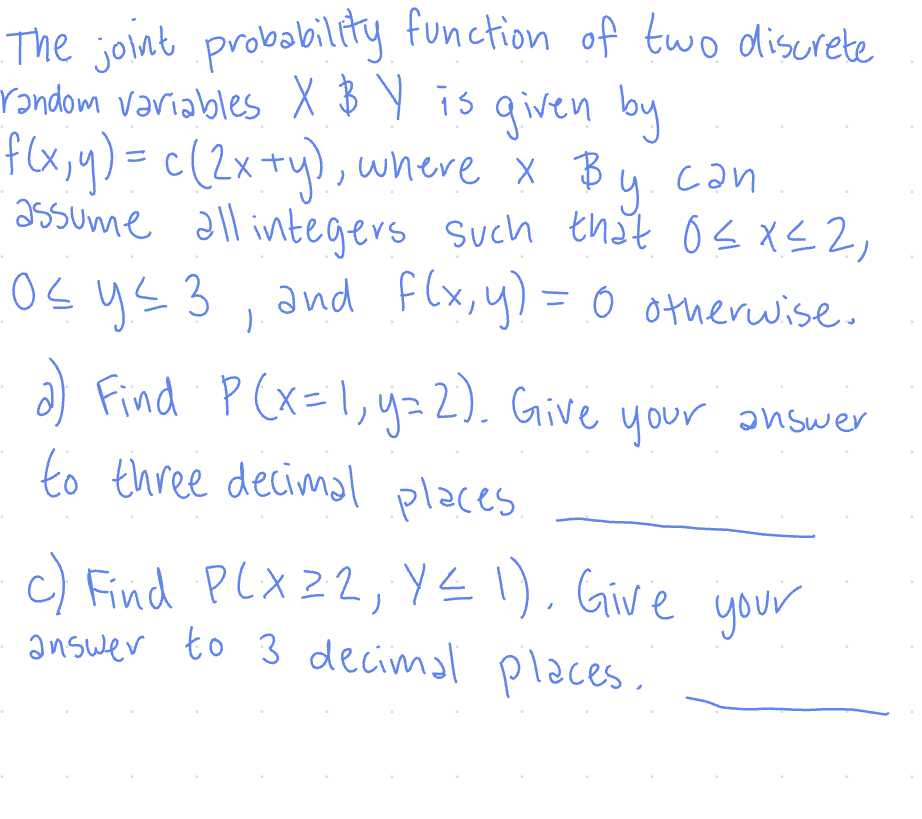 The joint probability function of two discrete
random variables X & Y is given by
f(x,y) = c(2x+y), where x & y can
assume all integers such that 0 ≤ x ≤ 2,
0 ≤ y ≤ 3, and f(x,y) = 0 otherwise.
a) Find P(x=1, y=2). Give your answer
to three decimal places
c) Find P(X ≥ 2, Y ≤ 1). Give your
answer to 3 decimal places.